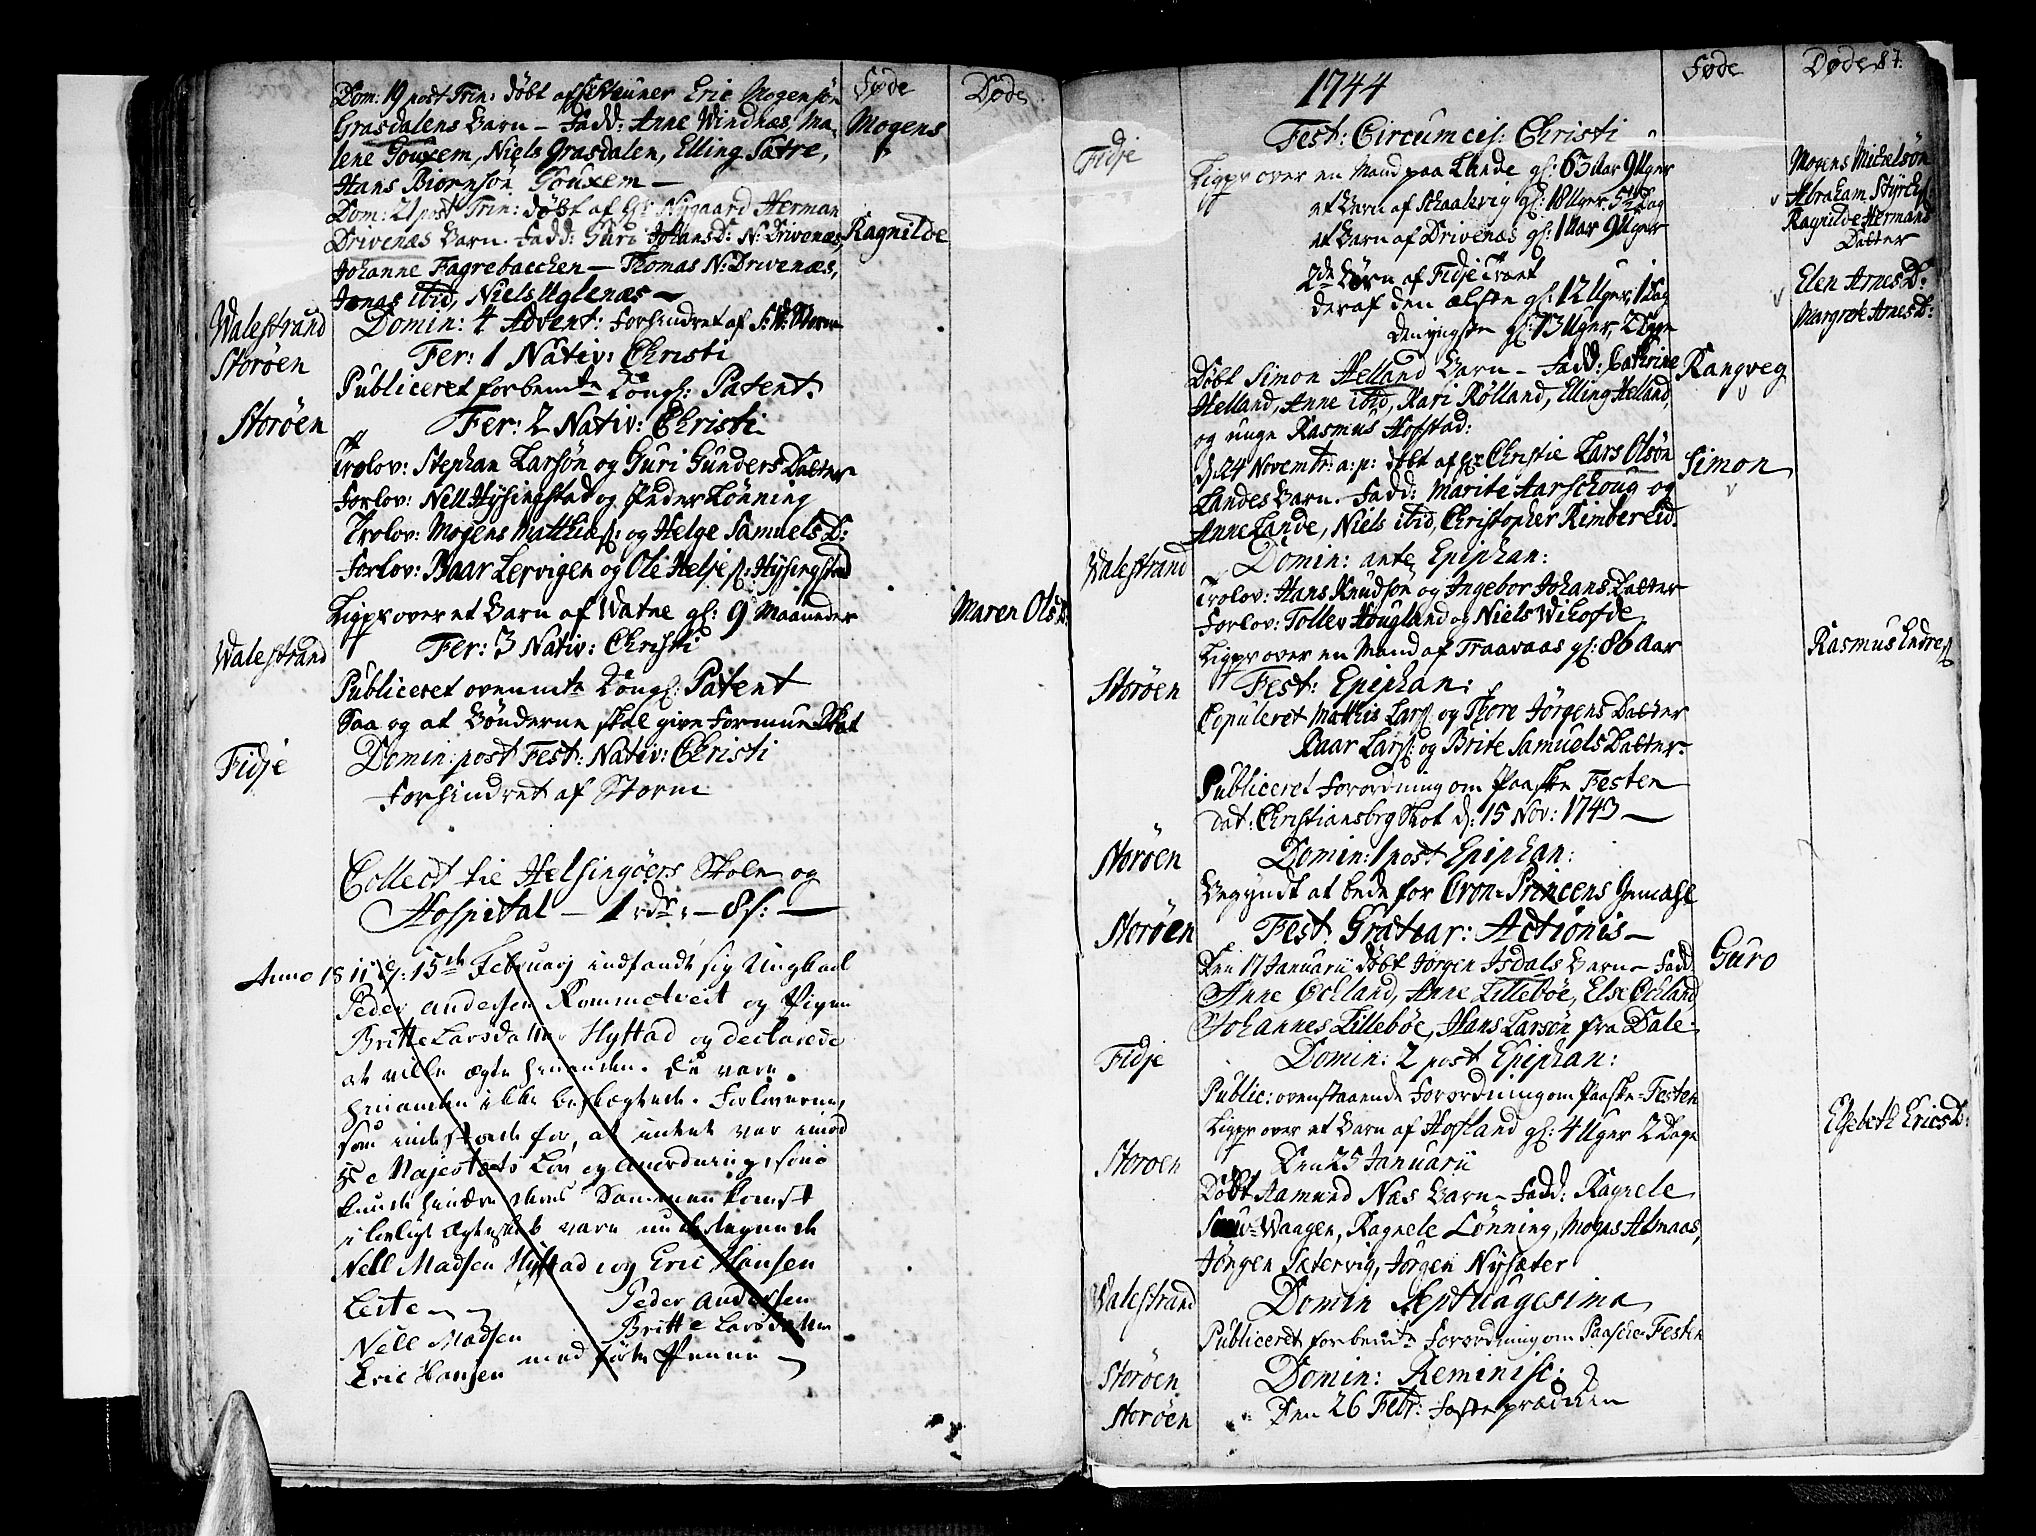 Føde
Døde
Dom: 19 post Trin: døbt af Hr Heuner Eric Mogensøn
Grasdalens Barn – Fadd: Anne Windnæs, Ma-
Mogens
lene Gouxem, Niels Grasdalen, Elling Sætre,
Hans Biørnsøn Gouxem –
Dom: 21 post Trin: døbt af Hr Nygaard Herman
Drivenæs Barn. Fadd: Guri Johans D: N: Drivenæs,
Ragnilde
Johanne Fagrebacchen – Thomas N: Drivenæs,
Jonas ibid, Niels Uglenæs –
Walestrand
Domin: 4 Advent: Forhindret af Storm
Storøen
Fer: 1 Nativ: Christi
Publiceret forbemte Kongl: Patent.
Storøen
Fer: 2 Nativ: Christi
Trolov: Stephan Larsøn og Guri Gunders Datter
Forlov: Nell Hysingstad og Peder Lønning
Trolov: Mogens Matthiaſ: og Helge Samuels D:
Forlov: Baar Lervigen og Ole Helje ſ: Hysingstad
Ligpr over et Barn af Watne gl: 9 Maaneder
Maren Ols D:
Walestrand
Fer: 3 Nativ: Christi
Publiceret ovenmte Kongl: Patent
Saa og at Bønderne skal give Formue Skat
Fidje
Domin: post Fest: Nativ: Christi
Forhindret af Storm
Collect til Helsingøers Skole og
Hospital – 1 rdr – 8 s: –
Anno 1811 d: 15de Februarj indfandt sig Ungkarl
Peder Andersen Rommetveit og Pigen
Britte Larsdatter Hystad og declarede
at ville ægte hinanden. De vare
hinanden ikke beslægtede. Forloverne,
som indestode for, at intet var imod
Hs Majestæts Lov og Anordning, som
kunde hindre deres Sammenkomst
i lovligt Ægteskab vare underskrevne
Nell Madsen Hystad og Eric Hansen
Leite
Peder Andersen
Nell Madsen
Britte Larsdatter
Eric Hansen
med førte Penne
1744
Føde
Døde
87.
Fest: Circumcis: Christi
Fidje
Ligpr over en Mand paa Lunde gl: 63 Aar 9 Uger
Mogens Michelsøn
et Barn af Schaalevig gl: 18 Uger 5 Dag
Abraham Styrchſ:
et Barn af Drivenæs gl: 1 Aar 9 Uger
Ragnilde Hermans
Datter
2de Børn af Fidje
deraf den ælste gl: 12 Uger 1 Dag
Elen Arnes D:
den yngste gl: 13 Uger 2 Dage
Margrete Arnes D:
Døbt Simon Helland Barn – Fadd: Cathrine
Rangveg
Helland, Anne ibid, Kari Rølland, Elling Helland,
og unge Rasmus Hofstad:
d: 24 Novembr: a: p: døbt af Hr Christie Lars Olsøn
Simon
Landes Barn. Fadd: Marite Aarschoug og
Anne Lande, Niels ibid, Christopher Rimbereid.
Walestrand
Domin: ante Epiphan:
Trolov: Hans Knudsøn og Ingebor Johans Datter
Forlov: Tollev Hougland og Niels Wikofde
Ligpr over en Mand af Traavaas gl: 86 Aar
Rasmus Endreſ
Storøen
Fest: Epiphan:
Copuleret Mathis Larſ: og Thore Jørgens Datter
Baar Larſ: og Brite Samuels Datter
Publiceret Forordning om Paaske Festen
dat: Christiansbrg Slot d: 15 Nov: 1743 –
Storøen
Domin: 1 post Epiphan:
Begyndt at bede for Cron-Princens Gemahl
Storøen
Fest: Gratiar: Actionis –
Den 17 Januarii døbt Jørgen Isdals Barn – Fadd:
Guro
Anne Øchland, Anne Lillebøe, Else Øchland
Johannes Lillebøe, Hans Larsøn fra Dale
Fidje
Domin: 2 post Epiphan:
Public: ovenstaaende Forordning om Paaske-Festen
Ligpr over et Barn af Hofland gl: 4 Uger 2 Dage
Elsebeth Erics D:
Storøen
Den 25 Januarii
Døbt Aamund Næs Barn – Fadd: Ragnele
Waagen, Ragnele Lønning, Mogns Almaas,
Jørgen Sætervig, Jørgen Nysæter
Walestrand
Domin Septuagesima
Publiceret forbemte Forordning om Paaske-Festen
Storøen
Domin: Reminisc:
Storøen
Den 26 Febr: Fasteprædiken